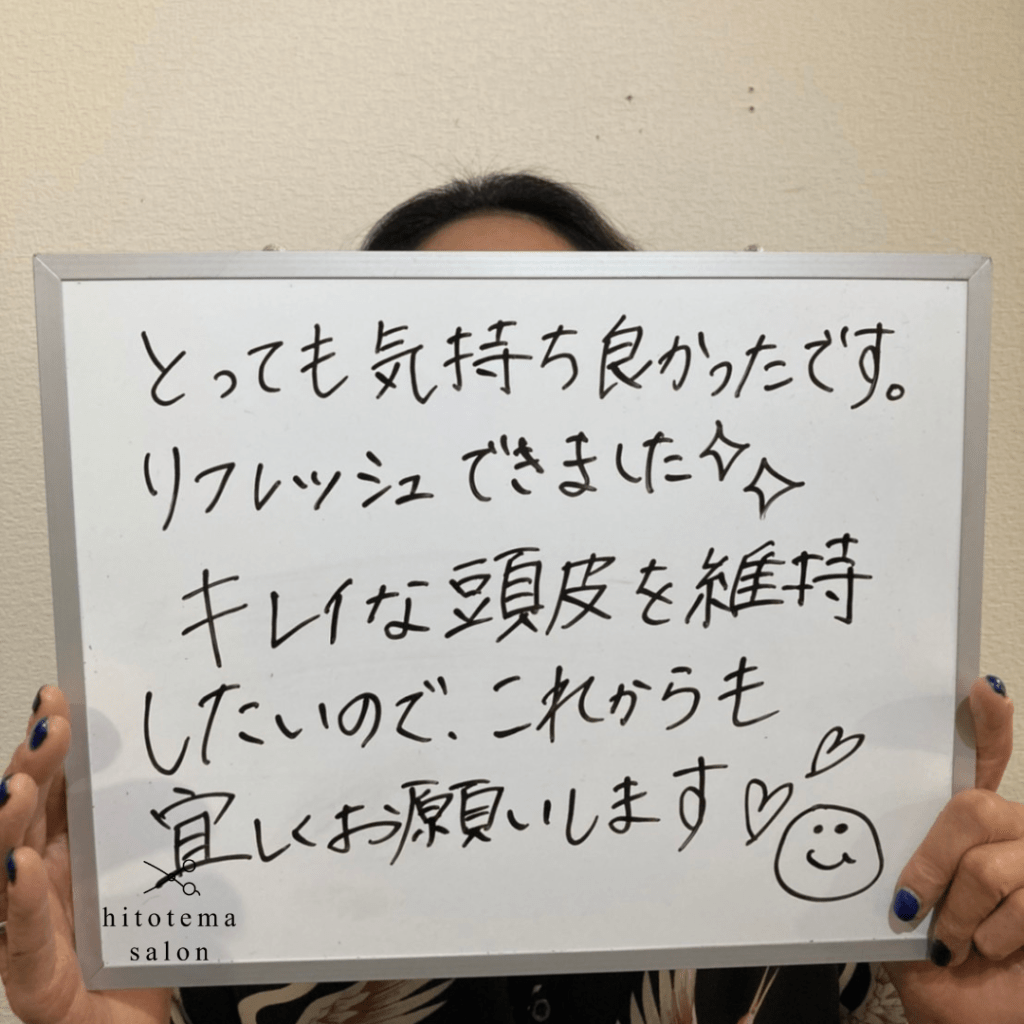 とっても気持ち良かったです。
リフレッシュできました
キレイな頭皮を維持
したいので、これからも
宜しくお願いします
hitotema
salon